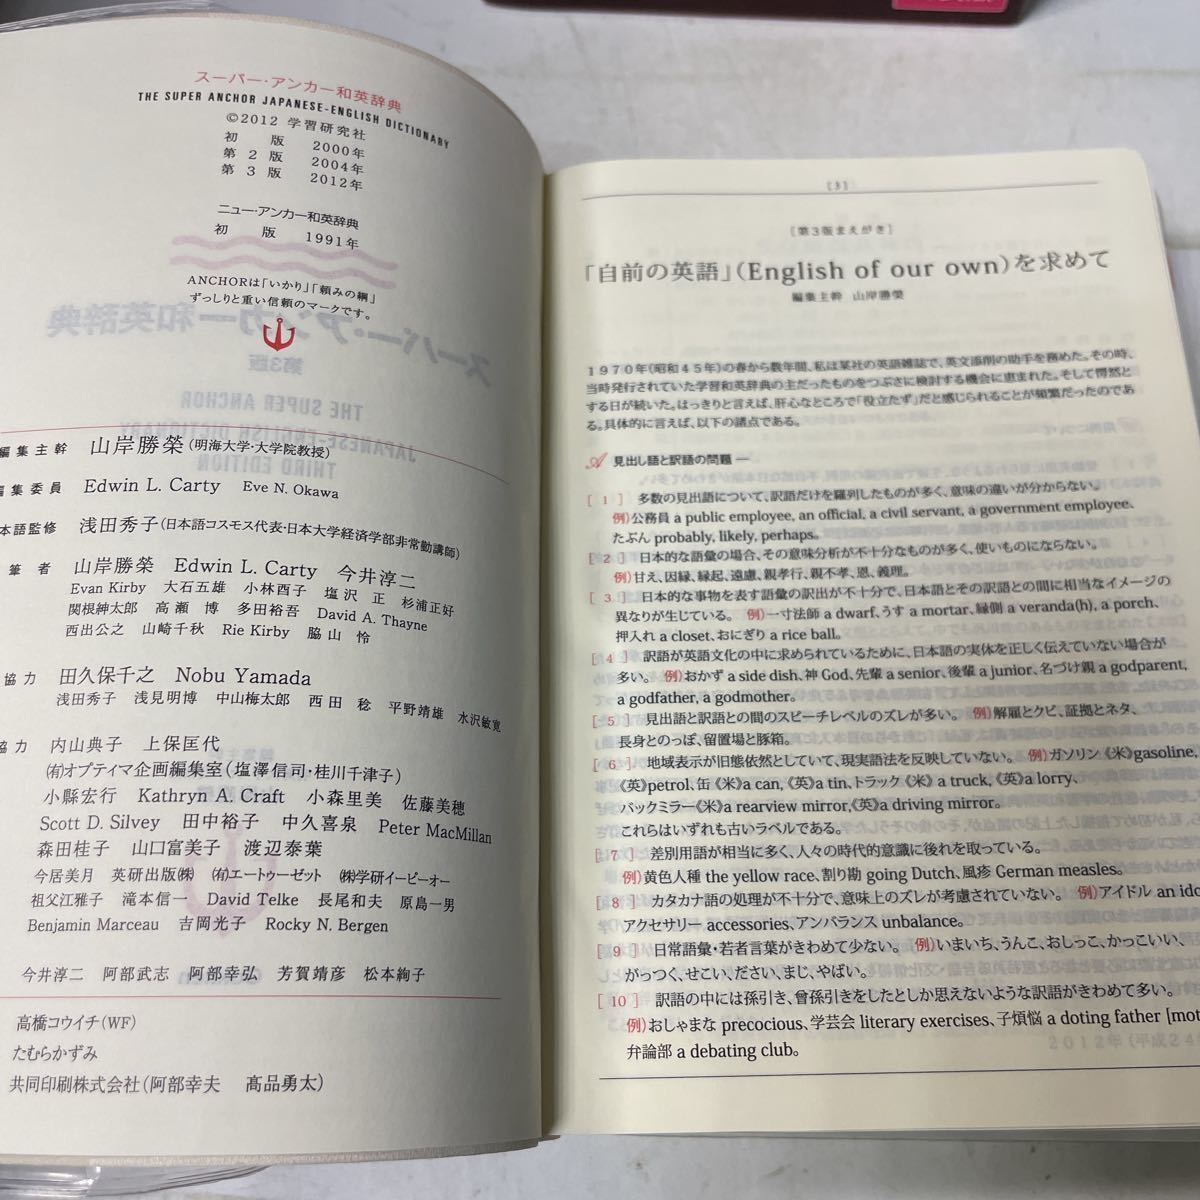 スーパー・アンカー和英辞典
THE SUPER ANCHOR JAPANESE-ENGLISH DICTIONARY
©2012 学習研究社
初版 2000年
第2版 2004年
第3版 2012年
ニュー・アンカー和英辞典
初版 1991年
ANCHORは「いかり」「頼みの綱」
ずっしりと重い信頼のマークです。
編集主幹 山岸勝榮(明海大学・大学院教授)
編集委員 Edwin L. Carty Eve N. Okawa
本語監修 浅田秀子(日本語コスモス代表・日本大学経済学部非常勤講師)
筆者 山岸勝榮 Edwin L. Carty 今井淳二
Evan Kirby 大石五雄 小林酉子 塩沢正 杉浦正好
関根紳太郎 高瀬博 多田裕吾 David A. Thayne
西出公之 山崎千秋 Rie Kirby 脇山怜
協力 田久保千之 Nobu Yamada
浅田秀子 浅見明博 中山梅太郎 西田稔 平野靖雄 水沢敏寛
協力 内山典子 上保匡代
(有)オプティマ企画編集室(塩澤信司・桂川千津子)
小縣宏行 Kathryn A. Craft 小森里美 佐藤美穂
Scott D. Silvey 田中裕子 中久喜泉 Peter MacMillan
森田桂子 山口富美子 渡辺泰葉
今居美月 英研出版(株) (有)エートゥーゼット (株)学研イーピーオー
祖父江雅子 滝本信一 David Telke 長尾和夫 原島一男
Benjamin Marceau 吉岡光子 Rocky N. Bergen
今井淳二 阿部武志 阿部幸弘 芳賀靖彦 松本絢子
高橋コウイチ(WF)
たむらかずみ
共同印刷株式会社(阿部幸夫 髙品勇太)
[3]
[第3版まえがき]
「自前の英語」(English of our own)を求めて
編集主幹 山岸勝榮
1970年(昭和45年)の春から数年間、私は某社の英語雑誌で、英文添削の助手を務めた。その時、
当時発行されていた学習和英辞典の主だったものをつぶさに検討する機会に恵まれた。そして愕然と
する日が続いた。はっきりと言えば、肝心なところで「役立たず」だと感じられることが頻繁だったのであ
る。具体的に言えば、以下の諸点である。
A 見出し語と訳語の問題―
[1] 多数の見出語について、訳語だけを羅列したものが多く、意味の違いが分からない。
例)公務員 a public employee, an official, a civil servant, a government employe、
たぶん probably, likely, perhaps。
[2] 日本的な語彙の場合、その意味分析が不十分なものが多く、使いものにならない。
例)甘え、因縁、縁起、遠慮、親孝行、親不孝、恩、義理。
[3] 日本的な事物を表す語彙の訳出が不十分で、日本語とその訳語との間に相当なイメージの
異なりが生じている。 例)一寸法師 a dwarf、うす a mortar、縁側 a veranda(h), a porch、
押入れ a closet、おにぎり a rice ball。
[4] 訳語が英語文化の中に求められているために、日本語の実体を正しく伝えていない場合が
多い。 例)おかず a side dish、神 God、先輩 a senior、後輩 a junior、名づけ親 a godparent,
a godfather, a godmother。
[5] 見出語と訳語との間のスピーチレベルのズレが多い。 例)解雇とクビ、証拠とネタ、
長身とのっぽ、留置場と豚箱。
[6] 地域表示が旧態依然としていて、現実語法を反映していない。 例)ガソリン《米》gasoline,
《英》petrol、缶《米》a can, 《英》a tin、トラック《米》a truck, 《英》a lorry、
バックミラー《米》a rearview mirror,《英》a driving mirror。
これらはいずれも古いラベルである。
[7] 差別用語が相当に多く、人々の時代的意識に後れを取っている。
例)黄色人種 the yellow race、割り勘 going Dutch、風疹 German measles。
[8] カタカナ語の処理が不十分で、意味上のズレが考慮されていない。 例)アイドル an ido
アクセサリー accessories、アンバランス unbalance。
[9] 日常語彙・若者言葉がきわめて少ない。 例)いまいち、うんこ、おしっこ、かっこいい、
がっつく、せこい、ださい、まじ、やばい。
[10] 訳語の中には孫引き、曾孫引きをしたとしか思えないような訳語がきわめて多い。
例)おしゃまな precocious、学芸会 literary exercises、子煩悩 a doting father [mot
弁論部 a debating club。
2012年(平成24年